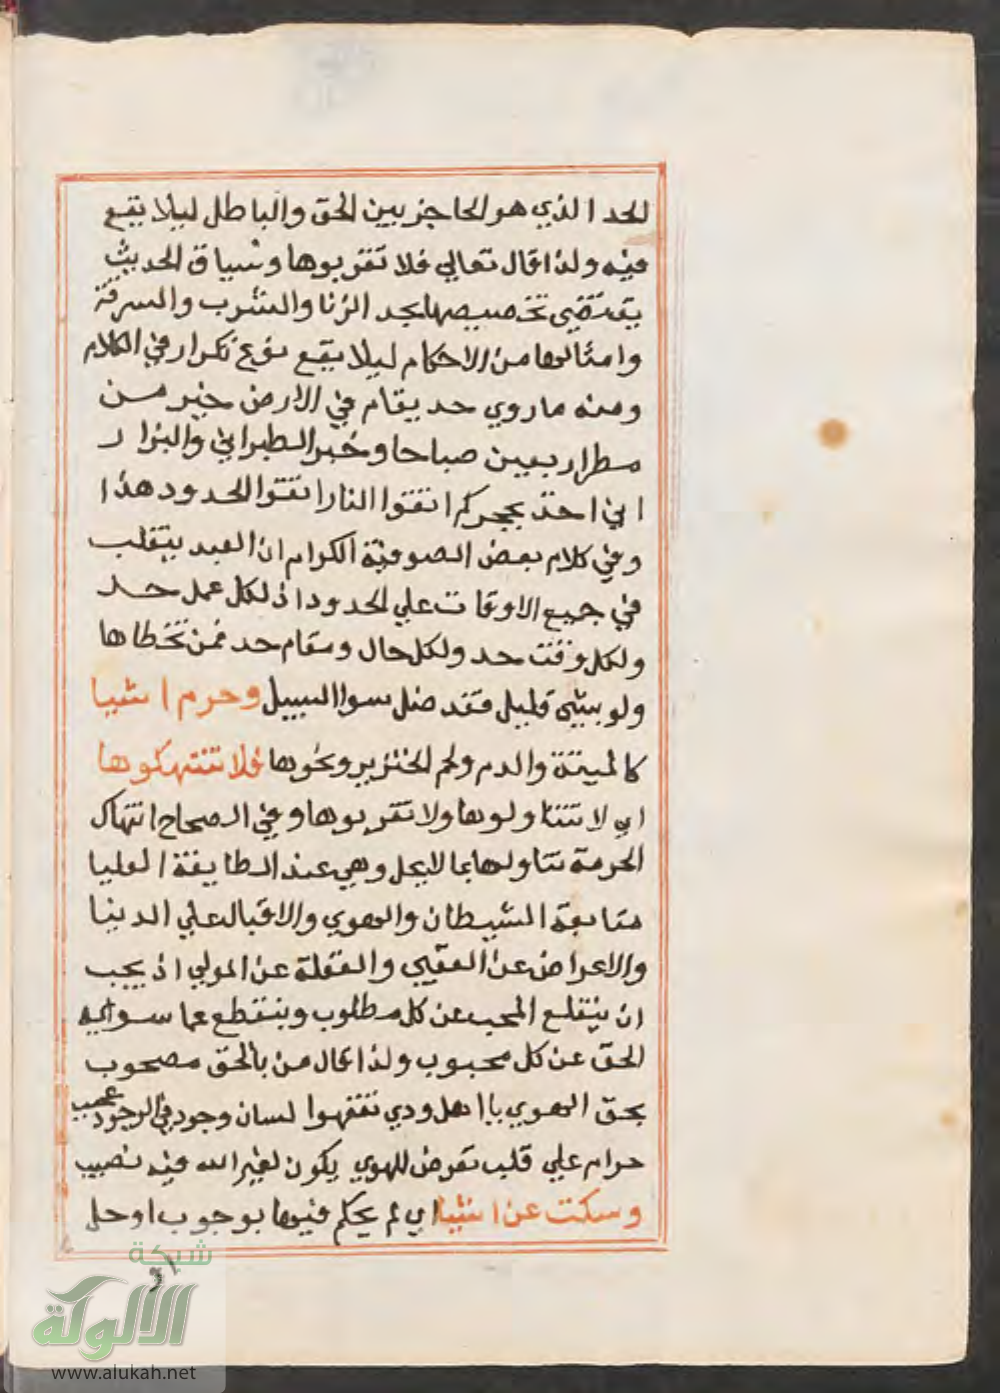 الحد الذي هو الحاجز بين الحق والباطل ليلا يقع
فيه ولذا قال تعالي فلا تقربوها وسياق الحديث
يقتضي تخصيصها بحد الزنا والشرب والسرقة
وامثالها من الاحكام ليلا يقع نوع تكرار في الكلام
ومنه ما روي حد يقام في الارض خير من
مطر اربعين صباحا وخبر الطبراني والبزار
اني اخذ بحجزكم اتقوا النار اتقوا الحدود هذا
وفي كلام بعض الصوفية الكرام ان العبد يتقلب
في جميع الاوقات علي الحدود اذ لكل عمل حد
ولكل وقت حد ولكل حال ومقام حد فمن تخطاها
ولو بشي قليل فقد ضل سوا السبيل وحرم اشيا
كالميتة والدم ولحم الخنزير ونحوها فلا تنتهكوها
اي لا تتناولوها ولا تقربوها وفي الصحاح انتهاك
الحرمة تناولها بما لا يحل وهي عند الطايفة العليا
متابعة الشيطان والهوي والاقبال علي الدنيا
والاعراض عن العقبي والغفلة عن المولي اذ يجب
ان ينقلع المحب عن كل مطلوب وينقطع عما سواه
الحق عن كل محبوب ولذا قال من بالحق مصحوب
بحق الهوي يا اهل ودي تفهموا لسان وجود في الوجود عجيب
حرام علي قلب تعرض للهوي يكون لغير الله فيه نصيب
وسكت عن اشيا اي لم يحكم فيها بوجوب او حل
شبكة
الألوكة
www.alukah.net